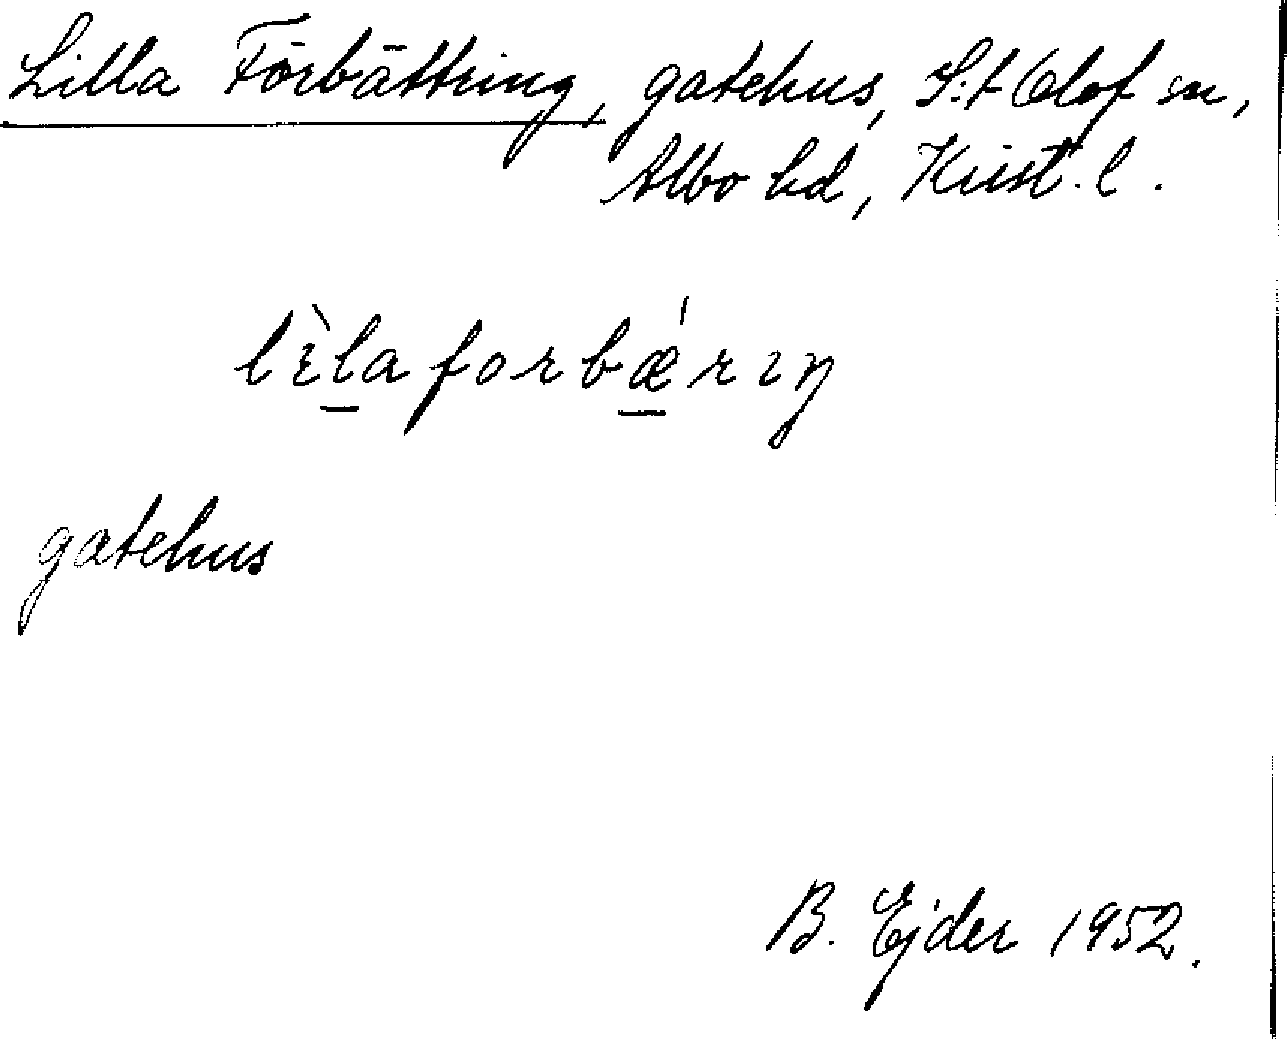 Lilla Förbättring, gatehus, S:t Olof sn,
Albo hd, Krist. l.
lìlaforbǽrıŋ
gatehus
B. Ejder 1952.